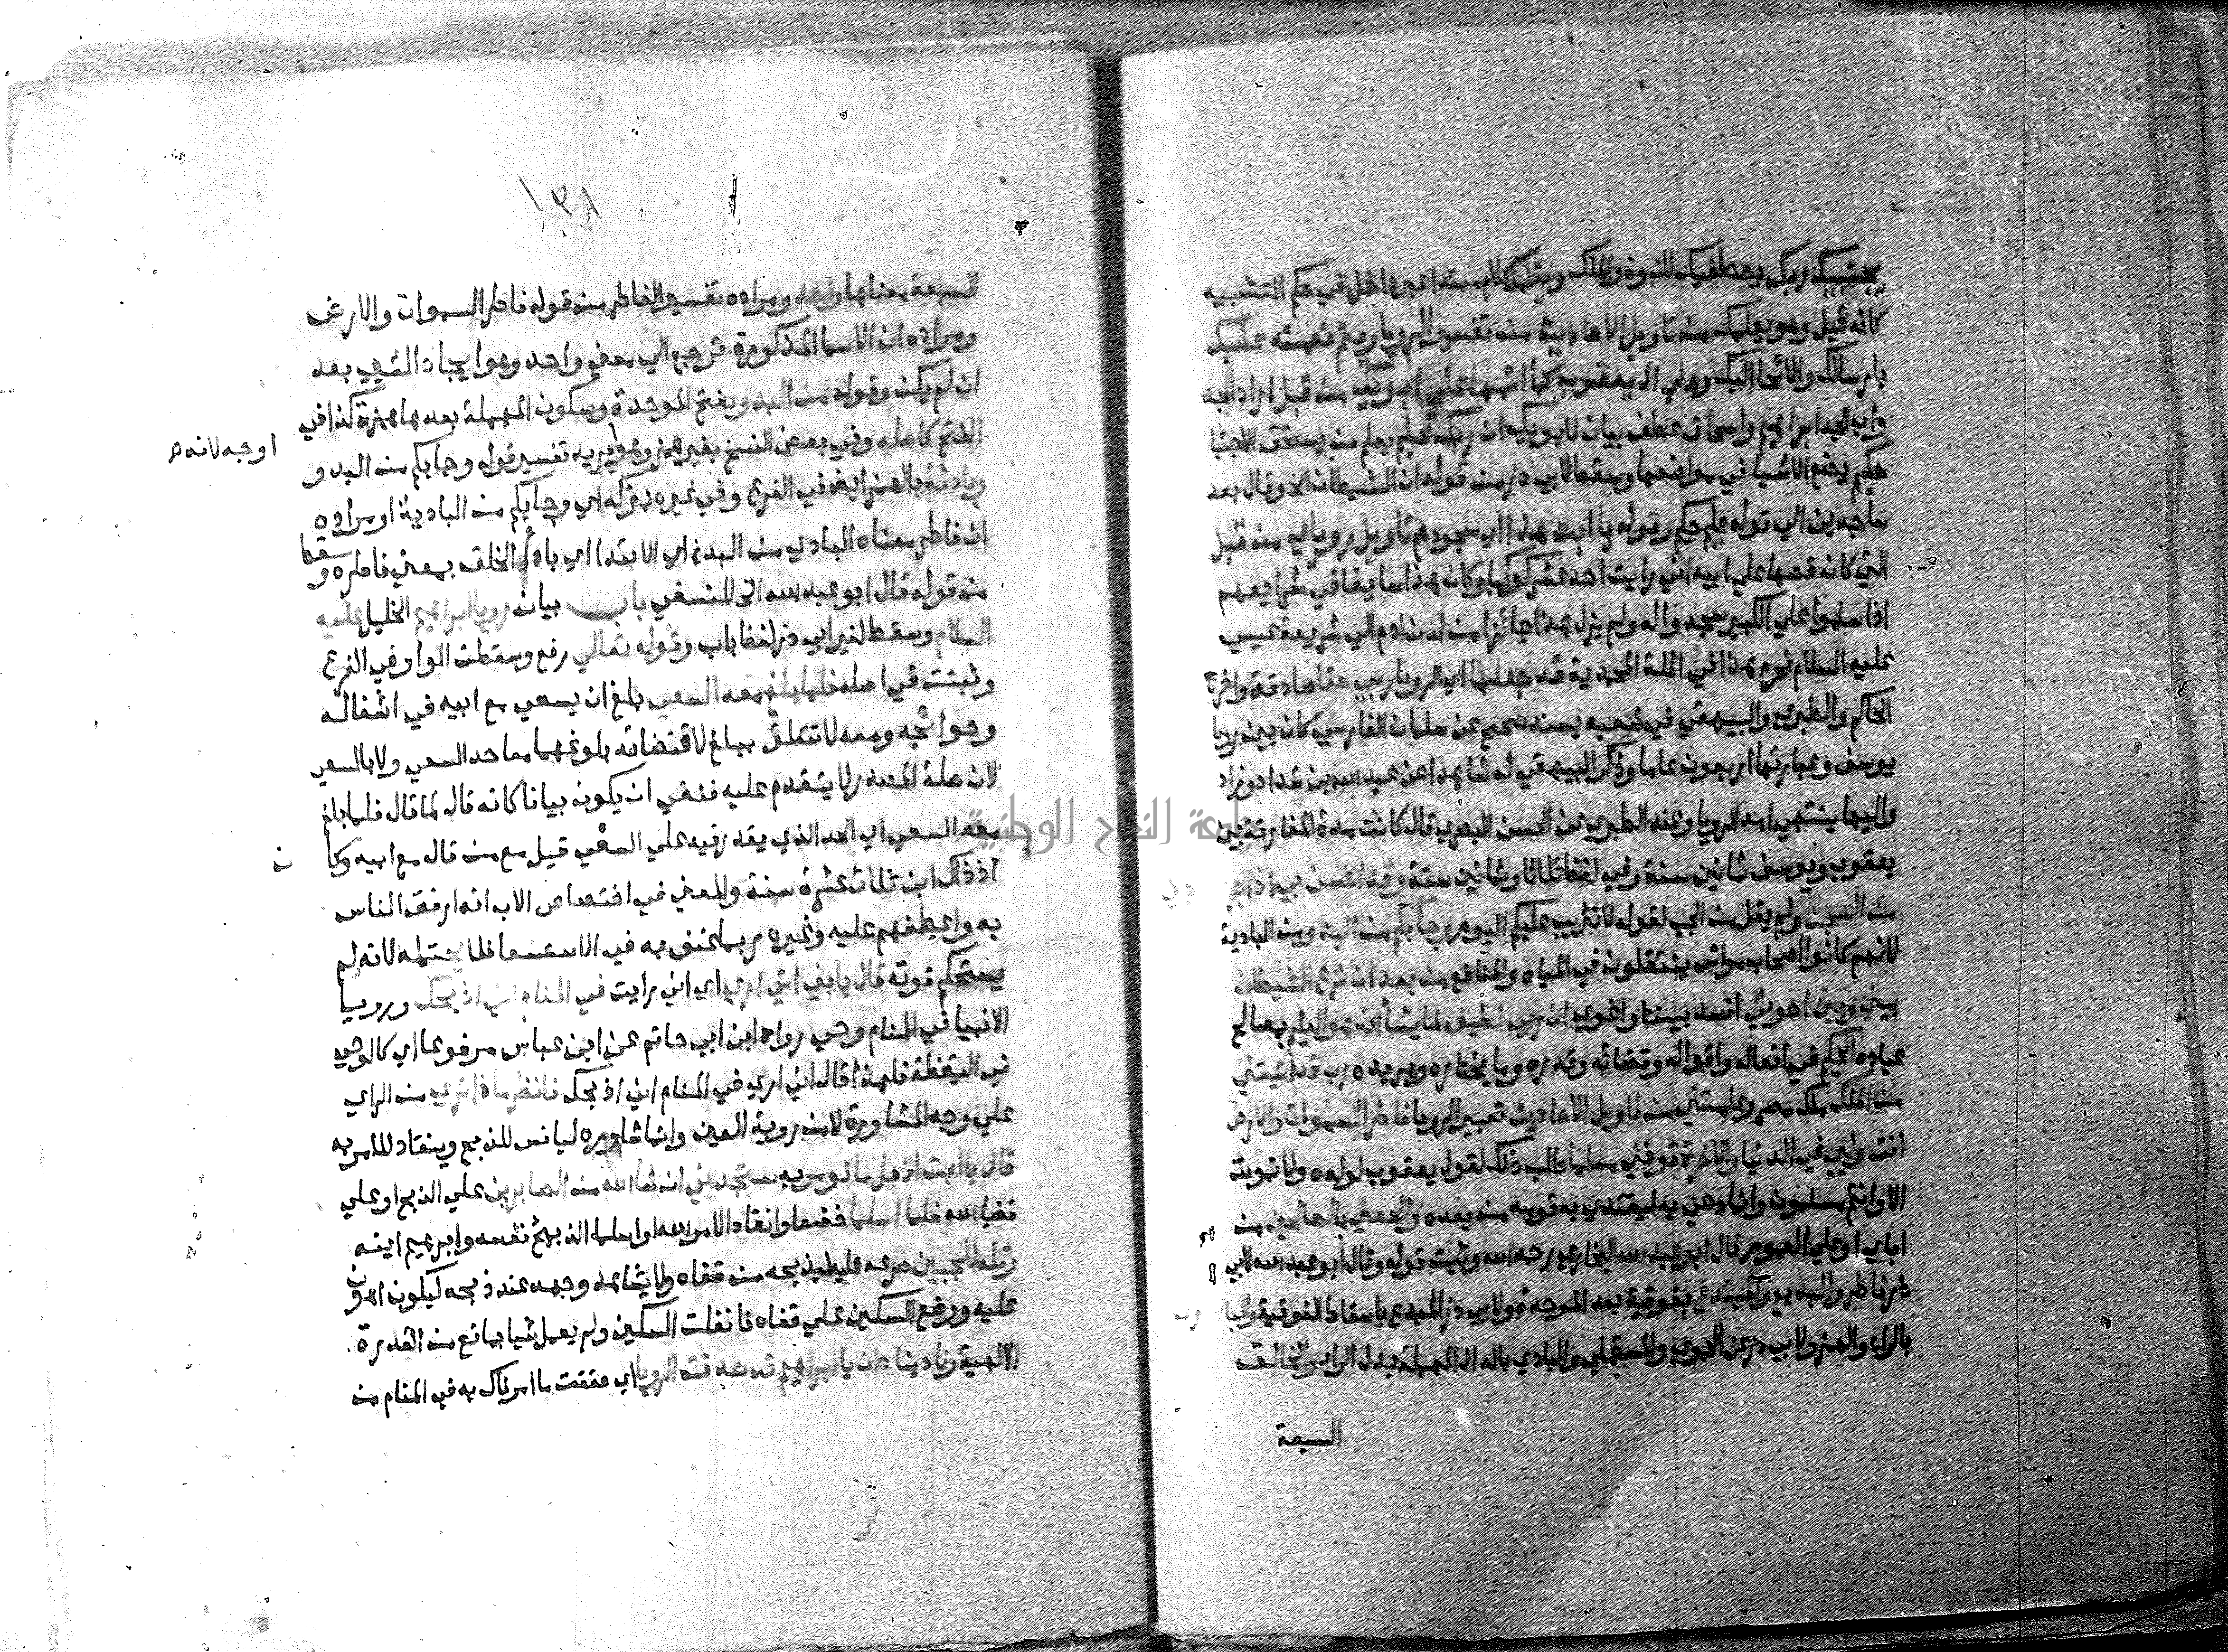 يجتبيك ربك يصطفيك للنبوة والملك ويعلمك كلام مبتدا غير داخل في حكم التشبيه
كانه قيل وهو يعلمك من تاويل الاحاديث من تفسير الرويا ويتم نعمته عليك
بارسالك والائحا اليك وعلي ال يعقوب كما اتمها علي ابويك من قبل اراد الجد
واب الجد ابراهيم واسحاق عطف بيان لابويك ان ربك عليم يعلم من يستحق الاجتبا
حكيم يضع الاشيا في مواضعها وسقط لابي ذر من قوله ان الشيطان الخ وقال بعد
ساجدين الي قوله عليم حكيم وقوله يا ابت هذا اي سجودهم تاويل روياي من قبل
التي كان قصها علي ابيه اني رايت احد عشر كوكبا وكان هذا سايغا في شرايعهم
اذا سلموا علي الكبير سجدوا له ولم يزل هذا جائزا من لدن ادم الي شريعة عيسي
عليه السلام فحرم هذا في الملة المحمدية قد جعلها اي الرويا ربي حقا صادقة واخرج
الحاكم والطبري والبيهقي في شعبه بسند صحيح عن سلمان الفارسي كان بين رويا
يوسف وعبارتها اربعون عاما وذكر البيهقي له شاهدا عن عبد الله بن شداد وزاد
واليها ينتهي امد الرويا وعند الطبري عن الحسن البصري قال كانت مدة المفارقة بين
يعقوب ويوسف ثمانين سنة وفي لفظ ثلاثا وثمانين سنة وقد احسن بي اذ اخرجني
من السجن ولم يقل من الجب لقوله لا تثريب عليكم اليوم وجا بكم من البدو من البادية
لانهم كانوا اصحاب مواش ينتقلون في المياه والمناقع من بعد ان نزغ الشيطان
بيني وبين اخوتي افسد بيننا واغوي ان ربي لطيف لما يشا انه هو العليم بمصالح
عباده الحكيم في افعاله واقواله وقضائه وقدره وما يختاره ويريده رب قد اتيتني
من الملك ملك مصر وعلمتني من تاويل الاحاديث تعبير الرويا فاطر السموات والارض
انت وليي في الدنيا والاخرة توفني مسلما طلب ذلك لقول يعقوب لولده ولا تموتن
الا وانتم مسلمون وانما دعي به ليقتدي به قومه من بعده والحقني بالصالحين من
اباي او علي العموم قال ابو عبد الله البخاري رحمه الله وثبت قوله وقال ابو عبد الله لابي
ذر فاطر والبديع والمبتدع بفوقية بعد الموحدة ولابي ذر المبدع باسقاط الفوقية والبا
بالراء والهمز ولابي ذر عن الحموي والمستملي والبادي بالدال المهملة بدل الراء والخالق
السبعة
١٣٨
السبعة معناها واحد ومراده تفسير الفاطر من قوله فاطر السموات والارض
ومراده ان الاسما المذكورة ترجع الي معني واحد وهو ايجاد الشي بعد
ان لم يكن وقوله من البدو بفتح الموحدة وسكون المهملة بعدها همزة كذا في
الفتح كاصله وفي بعض النسخ بغير همز وهو يريد تفسير قوله وجا بكم من البدو و
اوجه لانه ه
وبادئة بالهمز ايضا في الفرع وفي غيره بتركه اي وجا بكم من البادية او مراده
ان فاطر معناه البادي من البدء اي الابتدا اي بادئ الخلق بمعني فاطره وسقط
من قوله قال ابو عبد الله الخ للنسفي باب بيان رويا ابراهيم الخليل عليه
السلام وسقط لغير ابي ذر لفظ باب وقوله تعالي رفع وسقطت الواو في الفرع
وثبتت في اصله فلما بلغ معه السعي بلغ ان يسعي مع ابيه في اشغاله
وحوائجه ومعه لا تتعلق ببلغ لاقتضائه بلوغهما معا حد السعي ولا بالسعي
لان صلة المصدر لا يتقدم عليه فبقي ان يكون بيانا كانه قال لما قال فلما بلغ
معه السعي اي الحد الذي يقدر فيه علي السعي قيل مع من قال مع ابيه وكا
ن
اذ ذاك ابن ثلاث عشرة سنة والمعني في اختصاص الاب انه ارفق الناس
به واعطفهم عليه وغيره ربما عنف به في الاستسعا فلا يحتمله لانه لم
يستحكم قوته قال يا بني اني اري اي اني رايت في المنام اني اذبحك ورويا
الانبيا في المنام وحي رواه ابن ابي حاتم عن ابن عباس مرفوعا اي كالوحي
في اليقظة فلهذا قال اني اري في المنام اني اذبحك فانظر ماذا تري من الراي
علي وجه المشاورة لا من روية العين وانما شاوره ليانس للذبح وينقاد للامر به
قال يا ابت افعل ما تومر به ستجدني ان شا الله من الصابرين علي الذبح او علي
قضا الله فلما اسلما خضعا وانقادا لامر الله او اسلما الذبيح نفسه وابرهيم ابنه
وتله للجبين صرعه عليه ليذبحه من قفاه ولا يشاهد وجهه عند ذبحه ليكون اهون
عليه ووضع السكين علي قفاه فانفلت السكين ولم يعمل شيا بمانع من القدرة
الالهية وناديناه ان يا ابراهيم قد صدقت الرويا اي حققت ما امرناك به في المنام من